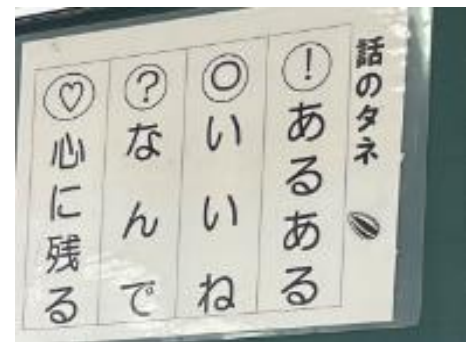 話のタネ
！あるある
○いいね
？なんで
♡心に残る